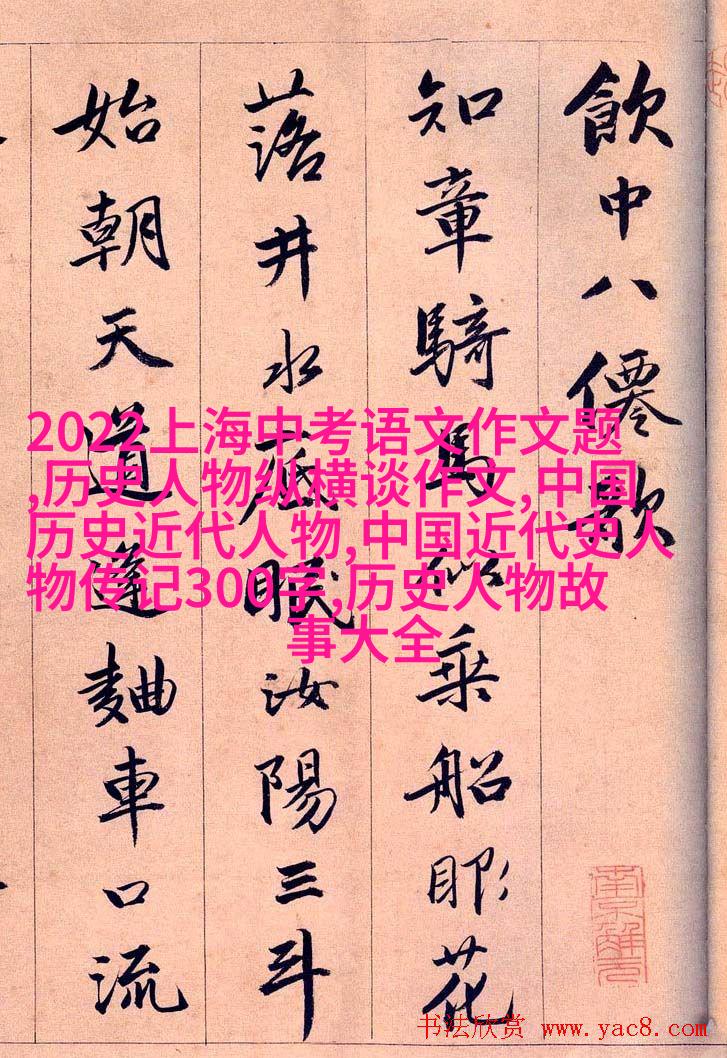 飲中八僊歌
知章騎馬似乘船眼花
落井水底眠汝陽三斗
始朝天道逢麯車口流
南京解元
2022上海中考语文作文题
,历史人物纵横谈作文,中国
历史近代人物,中国近代史人
物传记300字,历史人物故
事大全
书法欣赏 www.yac8.com